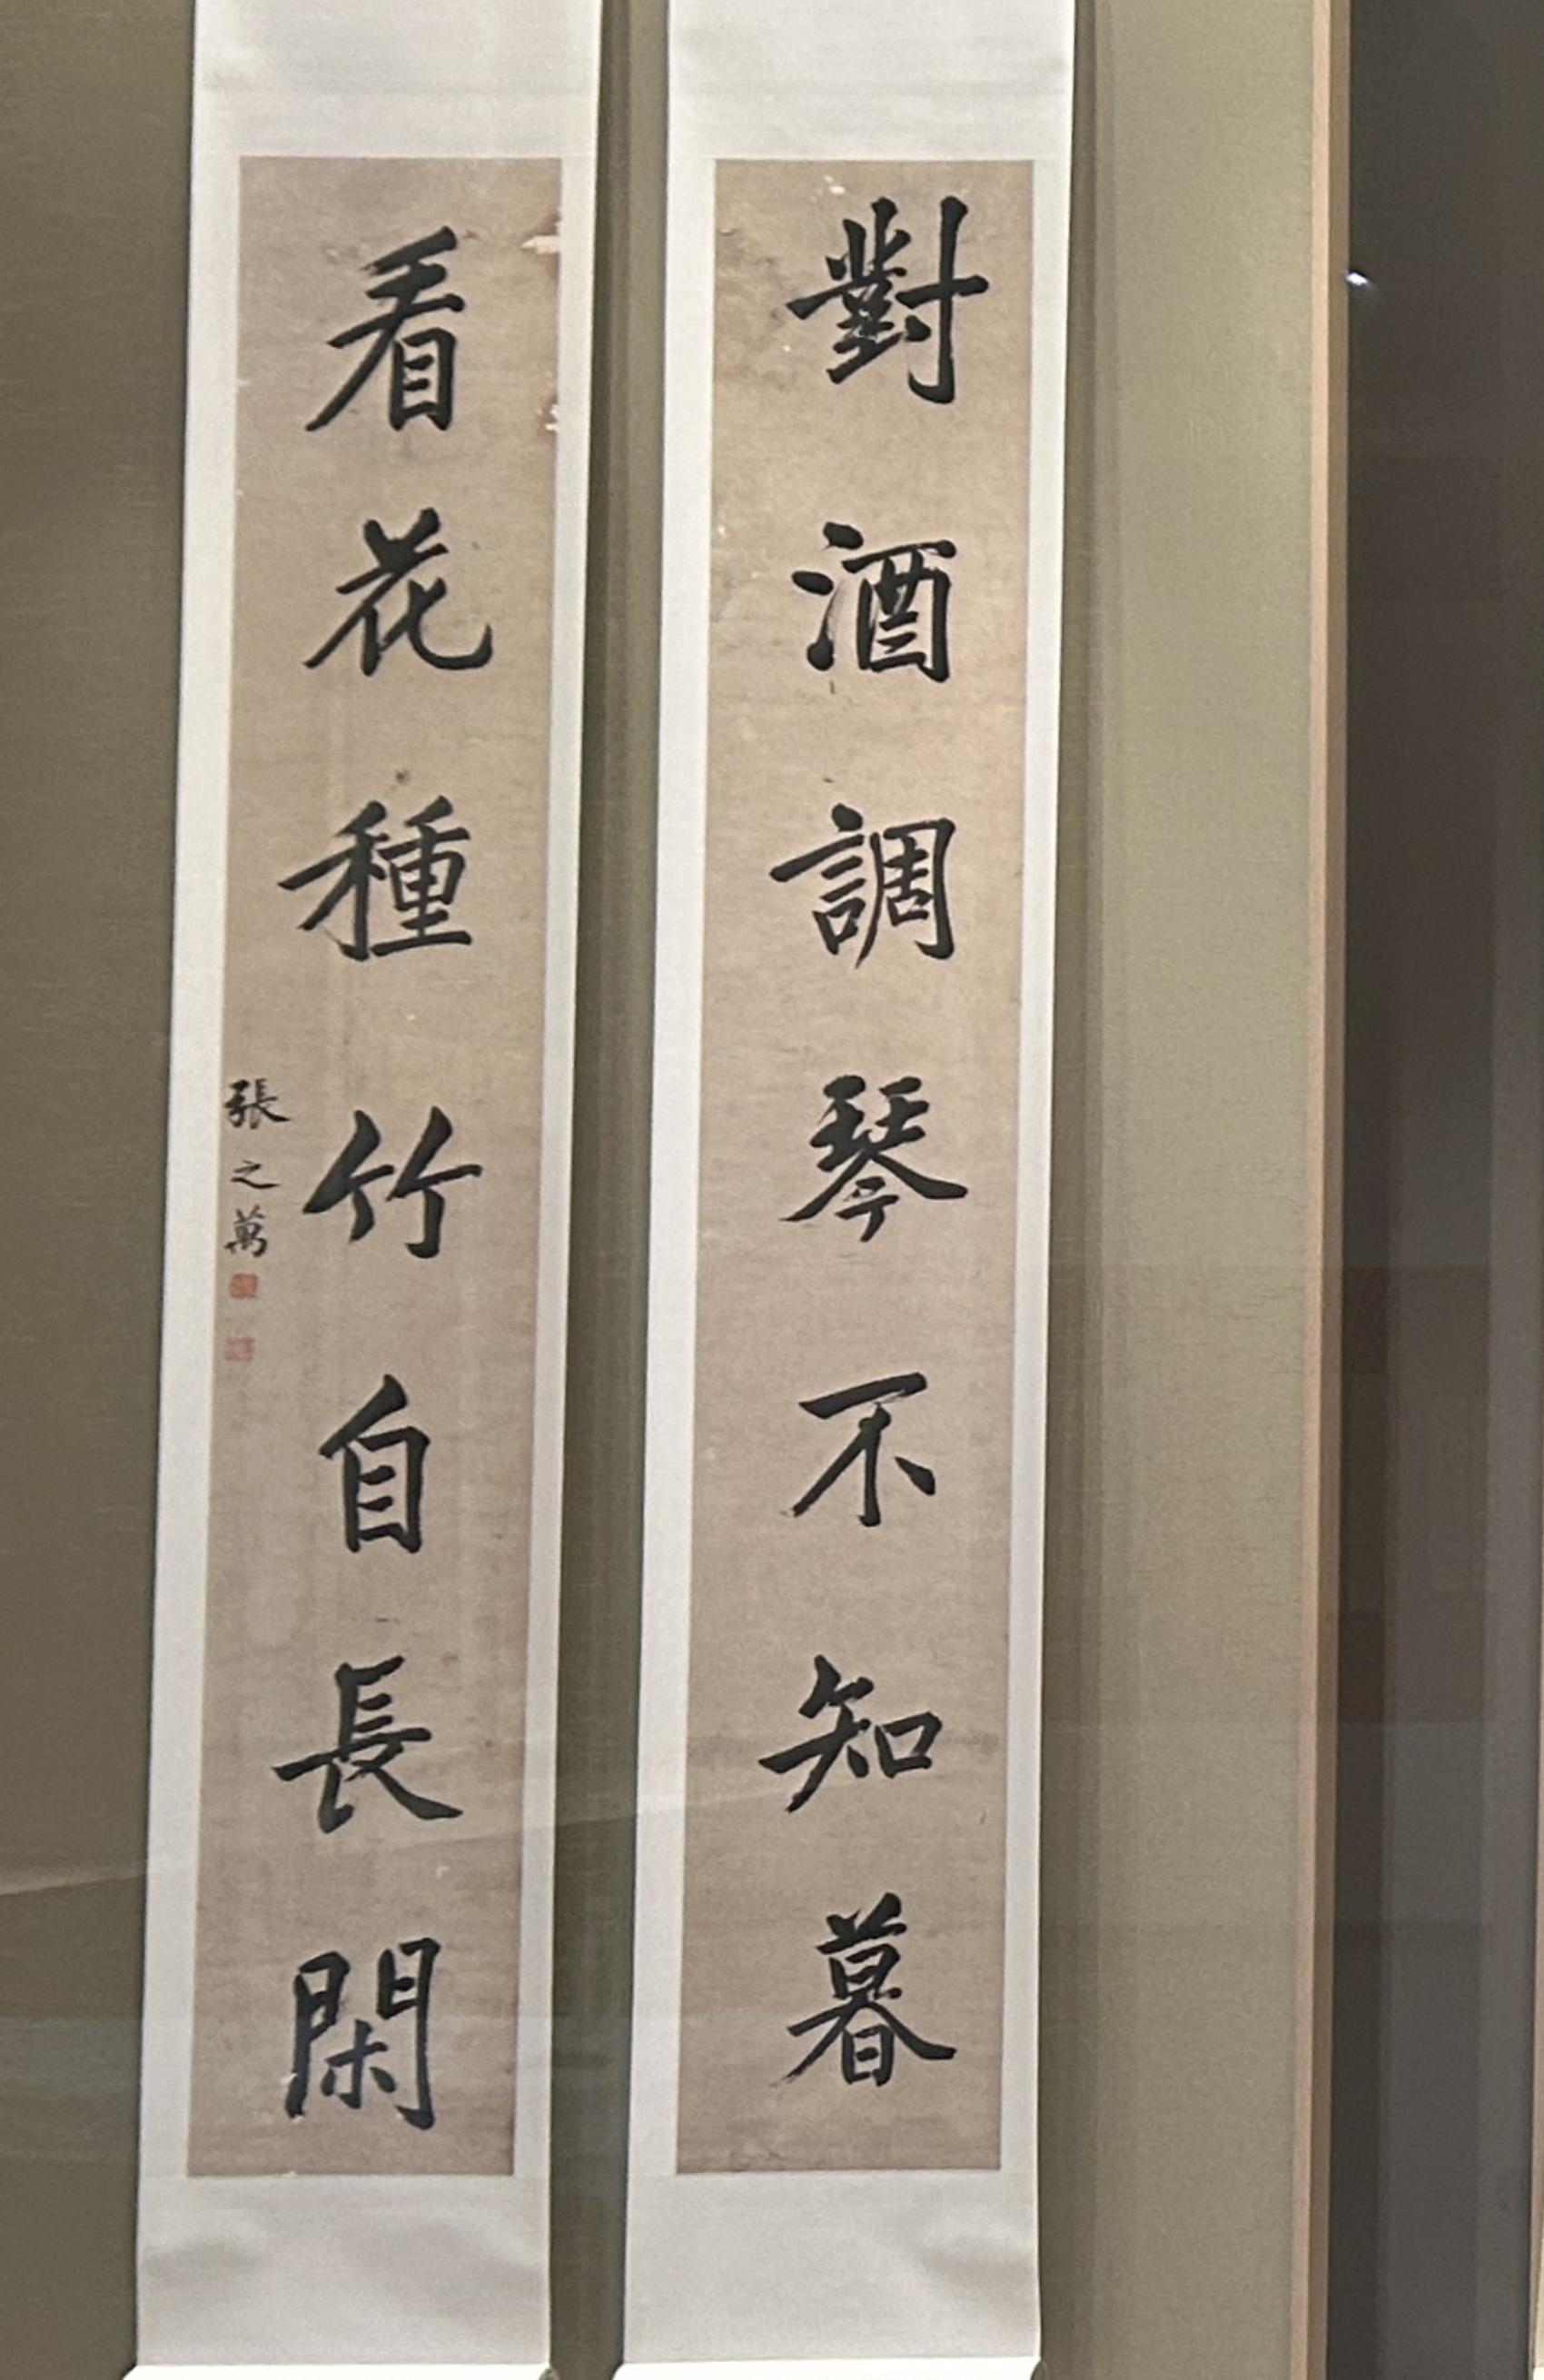 對酒調琴不知暮
看花種竹自長閑
張之萬